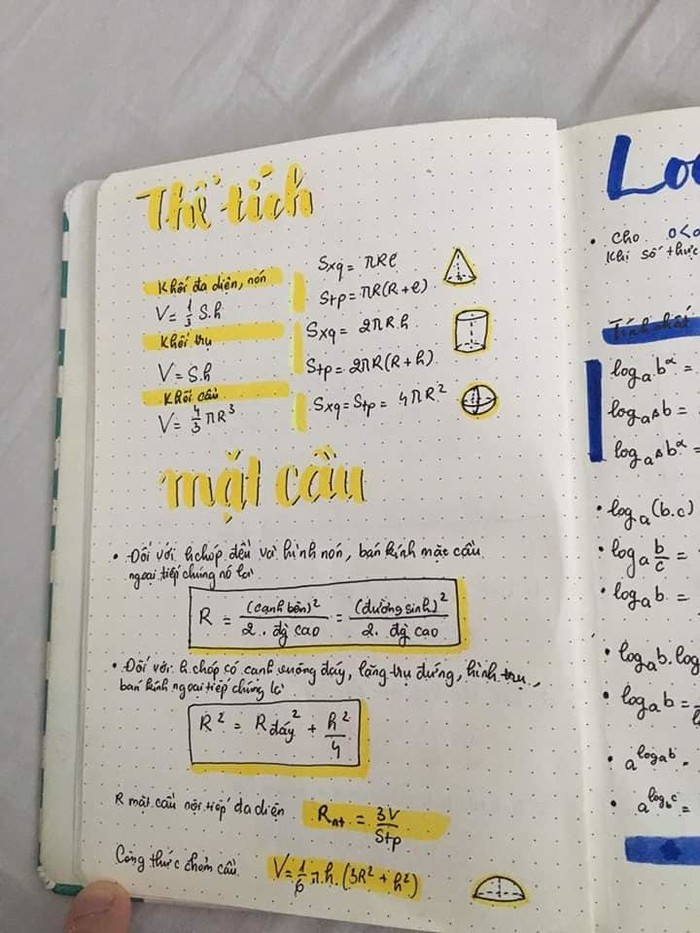 Thể tích
Khối đa diện, nón
V = 1/3 S.h
Sxq = πRl
Stp = πR(R+l)
Khối trụ
V = S.h
Sxq = 2πR.h
Stp = 2πR(R+h)
Khối cầu
V = 4/3 πR³
Sxq = Stp = 4πR²
mặt cầu
• Đối với h.chóp đều và hình nón, bán kính mặt cầu
ngoại tiếp chúng nó là
R = (cạnh bên)²/2. độ cao = (đường sinh)²/2. độ cao
• Đối với h.chóp có cạnh vuông đáy, lăng trụ đứng, hình trụ,
bán kính ngoại tiếp chúng là
R² = Rđáy² + h²/4
R mặt cầu nội tiếp đa diện Rnt = 3V/Stp
Công thức chỏm cầu V = 1/6 π.h.(3R² + h²)
Lo
• Cho 0<a
Khi số thực
Tính chất
logₐb^α =
logₐβb =
logₐβb^α =
• logₐ(b.c)
• logₐ b/c =
• logₐb =
• logₐb.log
• logₐb =
• a^logₐb =
• a^log_b c =